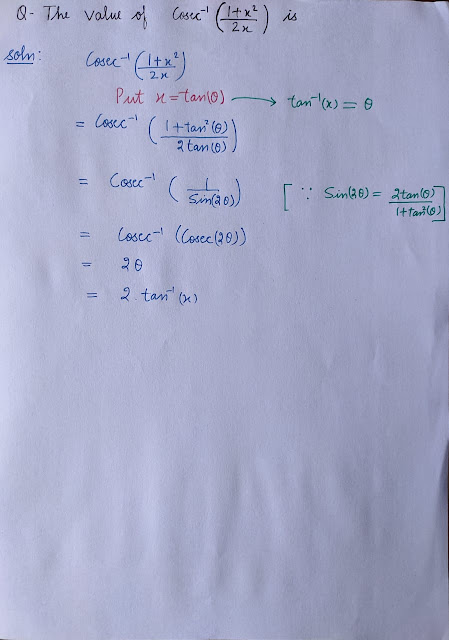 Q- The value of Cosec⁻¹ (1+x²/2x) is
soln:
Cosec⁻¹ (1+x²/2x)
Put x = tan(θ) ⟶ tan⁻¹(x) = θ
= Cosec⁻¹ (1+tan²(θ)/2tan(θ))
= Cosec⁻¹ (1/Sin(2θ)) [∵ Sin(2θ) = 2tan(θ)/1+tan²(θ)]
= Cosec⁻¹ (Cosec(2θ))
= 2θ
= 2 tan⁻¹(x)